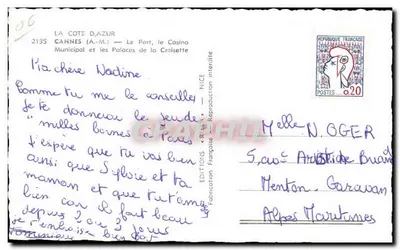 LA COTE D'AZUR
2135 CANNES (A.-M.) — Le Port, le Casino
Municipal et les Palaces de la Croisette
Ma chère Nadine.
Comme tu me le conseilles
je te donnerai le jeu de
"milles bornes" à Paris
J'espère que tu vas bien
ainsi que Sylvie et ta
maman et que tu t'amuses
bien car il fait beau
depuis 2 ou 3 jours
je t'embrasse bien fort
EDITIONS
NICE
Fabrication Française
REPUBLIQUE FRANÇAISE
POSTES 0,20
Melle N. OGER
5, ave Aristide Briand
Menton. Garavan
Alpes Maritimes